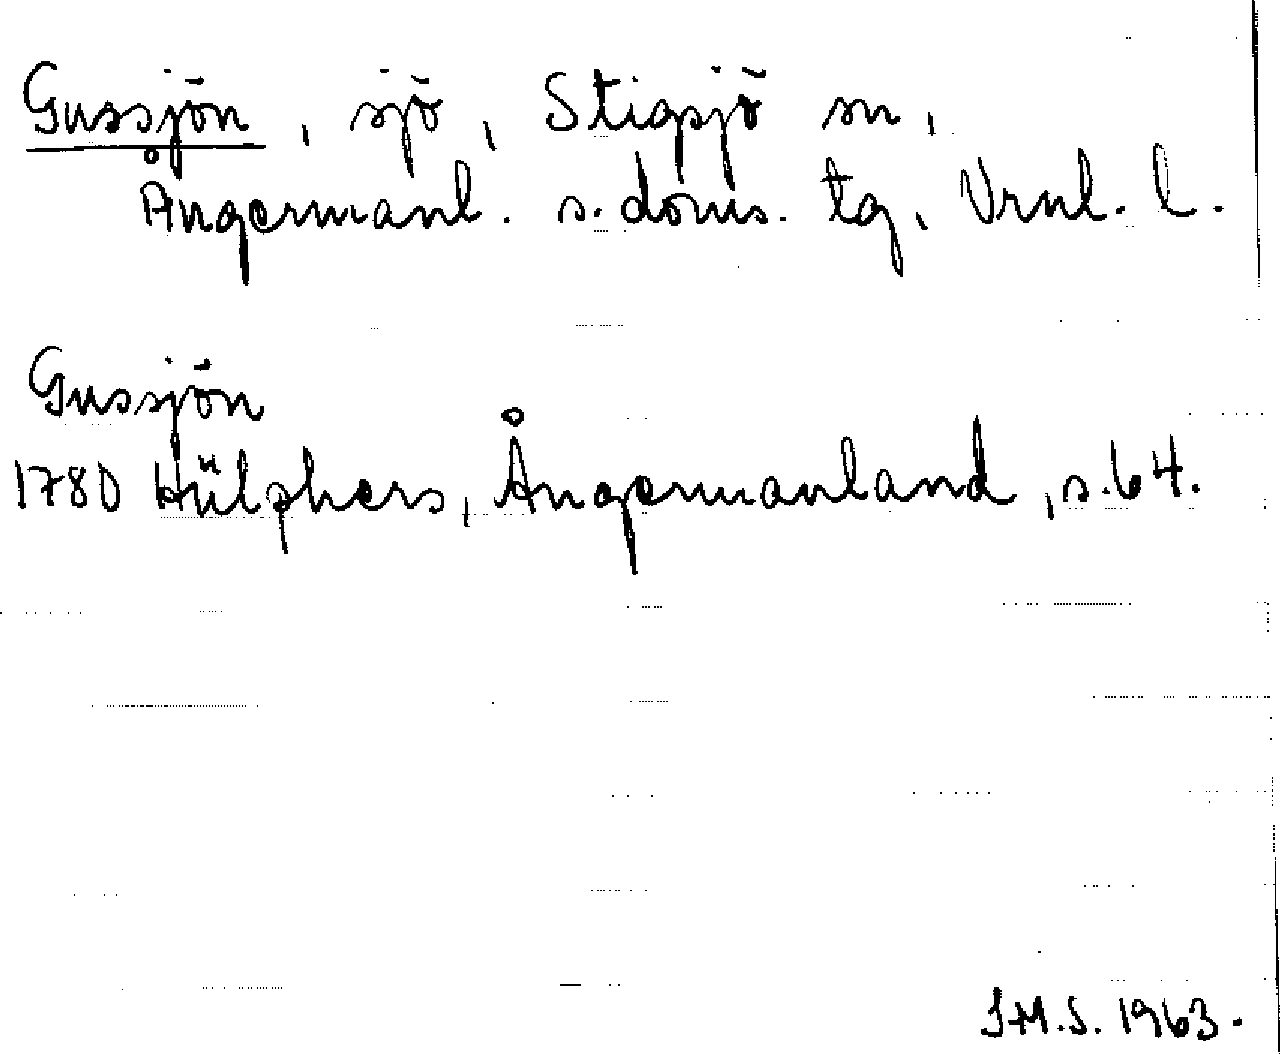 Gussjön, sjö, Stigsjö sn,
Ångermanl. s. doms. tg, Vrnl. l.
Gussjön
1780 Hülphers, Ångermanland, s. 64.
J.H.S. 1963.